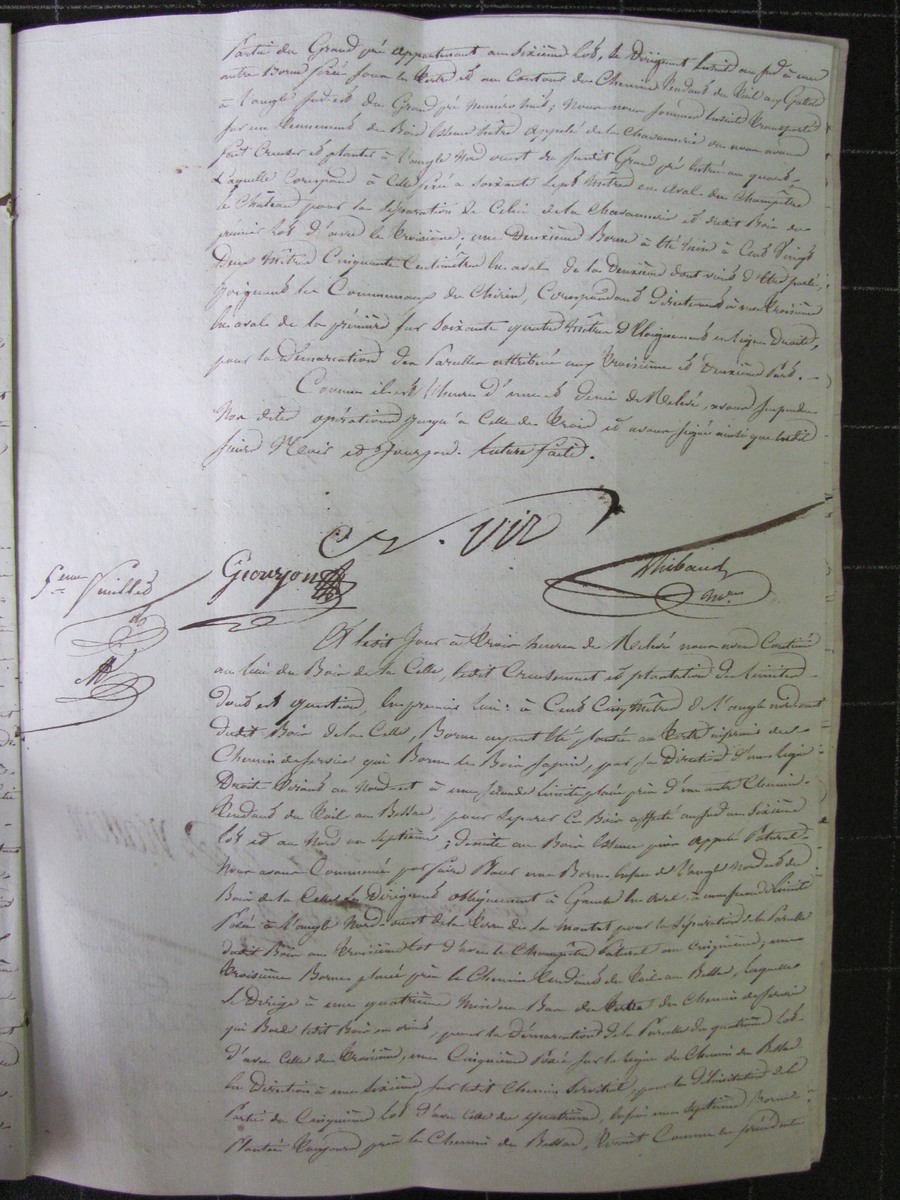 Partie du Grand pré appartenant au Sixième lot, se dirigeant ensuite au sud à une
autre Borne fixée sous le tertre et au Contour du Chemin tendant du Vail aux
à l'angle du Grand pré numéro huit; Nous nous sommes ensuite transportés
sur un tennement de Bois appelé de la Chavannerie où nous avons
fait Creuser et planter à l'angle Nord ouest du susdit Grand pré
Laquelle Correspond à Celle fixée a soixante Sept Mètres en aval du Champêtre
le Château pour la séparation de Celui de la Chavannerie et dudit Bois du
premier lot d'avec le troisième. une Deuxième Borne à été mise à Cent Vingt
Deux Mètres Cinquante Centimètres en aval de la Deuxième dont vient d'être parlé,
joignant les Communaux du Correspondant directement à une troisième
en aval de la première sur soixante quatre Mètres d'Eloignement en ligne droite,
pour la démarcation des Parcelles attribuées aux troisième et Deuxième lots. —
Comme il est l'heure d'une et demie de Relevé, avons suspendu
Nos dites opérations jusqu'à Celle de trois et avons signé ainsi que lesdits
sieurs et Grourjon. lecture faite.
Vir
Grourjon
Thibaud
5eme feuillet
Et ledit Jour à trois heures de Relevé nous avons Continué
au lieu du Bois de la Celle, ledit Creusement et plantation des limites
dont est question, en premier lieu: à Cent Cinq Mètres de l'angle nord ouest
dudit Bois de la Celle, Borne ayant été plantée au tertre du
Chemin de service qui Borne le Bois sapin, par sa Direction d'une ligne
Droite Visant au Nord-est à une seconde limite placée près d'un autre Chemin
tendant du Vail au Bessac, pour séparer ce Bois affecté au sud au Sixième
lot et au Nord au Septième; ensuite au Bois Essence pin appelé Patural
Nous avons Commencé par faire Placer une Borne de l'angle Nord est du
Bois de la Celle se Dirigeant obliquement à Gauche en aval, à une seconde limite
Posée à l'angle Nord-ouest de la terre de la pour la séparation de la Parcelle
dudit Bois au troisième lot d'avec le Champêtre Patural au Cinquième; une
troisième Borne placée près le Chemin tendant du Vail au Bessac, laquelle
se Dirige à une quatrième Mise au Bas du tertre du Chemin de service
qui Borde ledit Bois pour la Démarcation de la Parcelle du quatrième lot
d'avec Celle du troisième, une Cinquième Posée sur la ligne du Chemin du Bessac
en Direction à une Sixième, sur ledit Chemin pour la délimitation de la
Partie du Cinquième lot d'avec Celle du quatrième, enfin une Septième Borne
Plantée toujours près le Chemin du Bessac, Comme la précédente